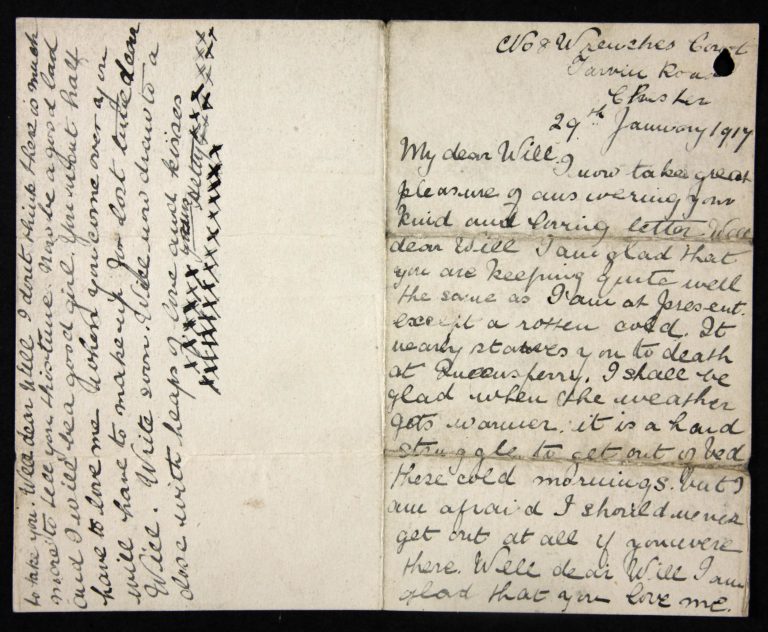 No 8 Wrenches Court
Tarvin Road
Chester
29th January 1917
My dear Will.
I now take great
pleasure of answering your
kind and loving letter. Well
dear Will I am glad that
you are keeping quite well
the same as I am at present.
except a rotten cold. It
nearly starves you to death
at Queensferry. I shall be
glad when the weather
gets warmer. it is a hard
struggle to get out of bed
these cold mornings. but I
am afraid I should never
get out at all if you were
there. Well dear Will I am
glad that you love me.
to take you. Well dear Will I dont think there is much
more to tell you this time. Now be a good lad
and I will be a good girl. You wont half
have to love me when you come over. you
will have to make up for lost time dear
Will. Write soon. Will now draw to a
close with heaps of love and kisses